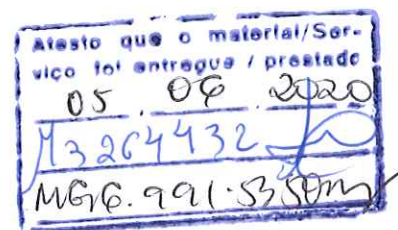 Atesto que o material/Ser-
viço foi entregue / prestado
05 . 06 . 2020
M3264432
MG6.991.535